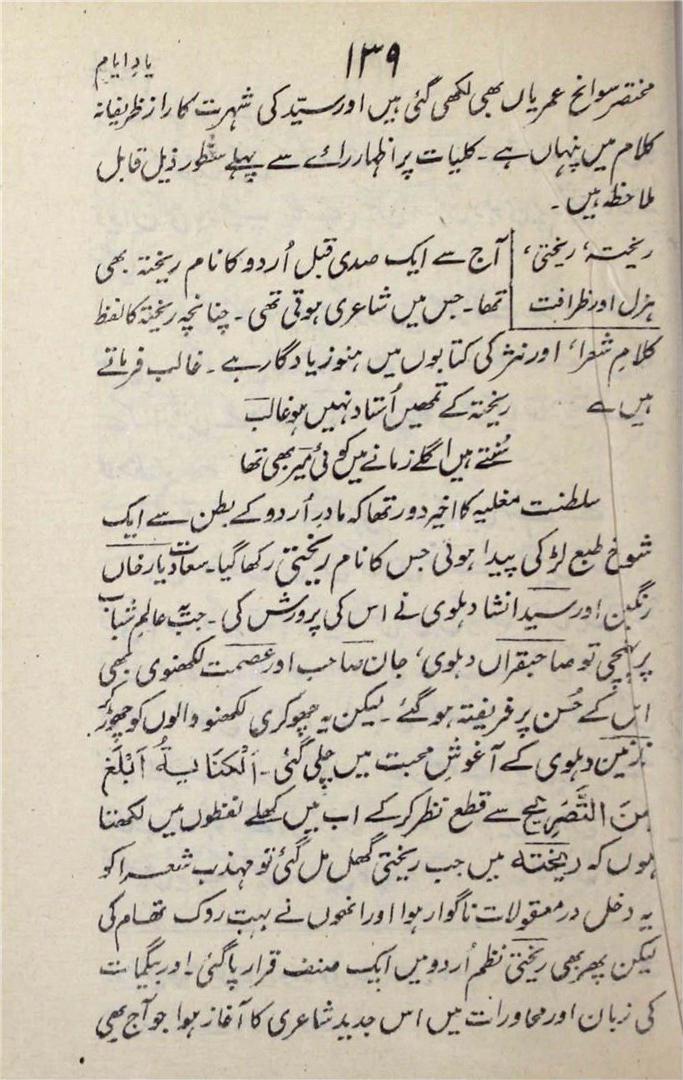 ۱۳۹
یادِ ایام
مختصر سوانح عمریاں بھی لکھی گئی ہیں اور سیّد کی شہرت کا راز ظریفانہ
کلام میں پنہاں ہے ۔ کلیات پر اظہار رائے سے پہلے سطور ذیل قابل
ملاحظہ ہیں ۔
ریختہ، ریختی،
ہزل اور ظرافت
آج سے ایک صدی قبل اُردو کا نام ریختہ بھی
تھا ۔ جس میں شاعری ہوتی تھی ۔ چنانچہ ریختہ کا لفظ
کلامِ شعرا، اور نثر کی کتابوں میں ہنوز یادگار ہے ۔ غالب فرماتے
ہیں ؎
ریختہ کے تمھیں اُستاد نہیں ہو غالب
سُنتے ہیں اگلے زمانے میں کوئی میر بھی تھا
سلطنت مغلیہ کا اخیر دور تھا کہ مادرِ اُردو کے بطن سے ایک
شوخ طبع لڑکی پیدا ہوئی جس کا نام ریختی رکھا گیا ۔ سعادت یار خاں
رنگین اور سید انشا دہلوی نے اس کی پرورش کی ۔ جب یہ عالمِ شباب
پر پہنچی تو صاحبقراں دہلوی، جان صاحب اور عصمت لکھنوی بھی
اس کے حُسن پر فریفتہ ہو گئے ۔ لیکن یہ چھوکری لکھنو والوں کو چھوڑ کر
نازنین دہلوی کے آغوشِ محبت میں چلی گئی ۔ اَلْکِنَایَۃُ اَبْلَغُ
مِنَ التَّصْرِیْحِ سے قطع نظر کر کے اب میں کھلے لفظوں میں لکھتا
ہوں کہ ریختہ میں جب ریختی گھل مل گئی تو مہذب شعرا کو
یہ دخل در معقولات ناگوار ہوا اور انھوں نے بہت روک تھام کی
لیکن پھر بھی ریختی نظم اُردو میں ایک صنف قرار پا گئی ۔ اور بیگمات
کی زبان اور محاورات میں اس جدید شاعری کا آغاز ہوا جو آج بھی